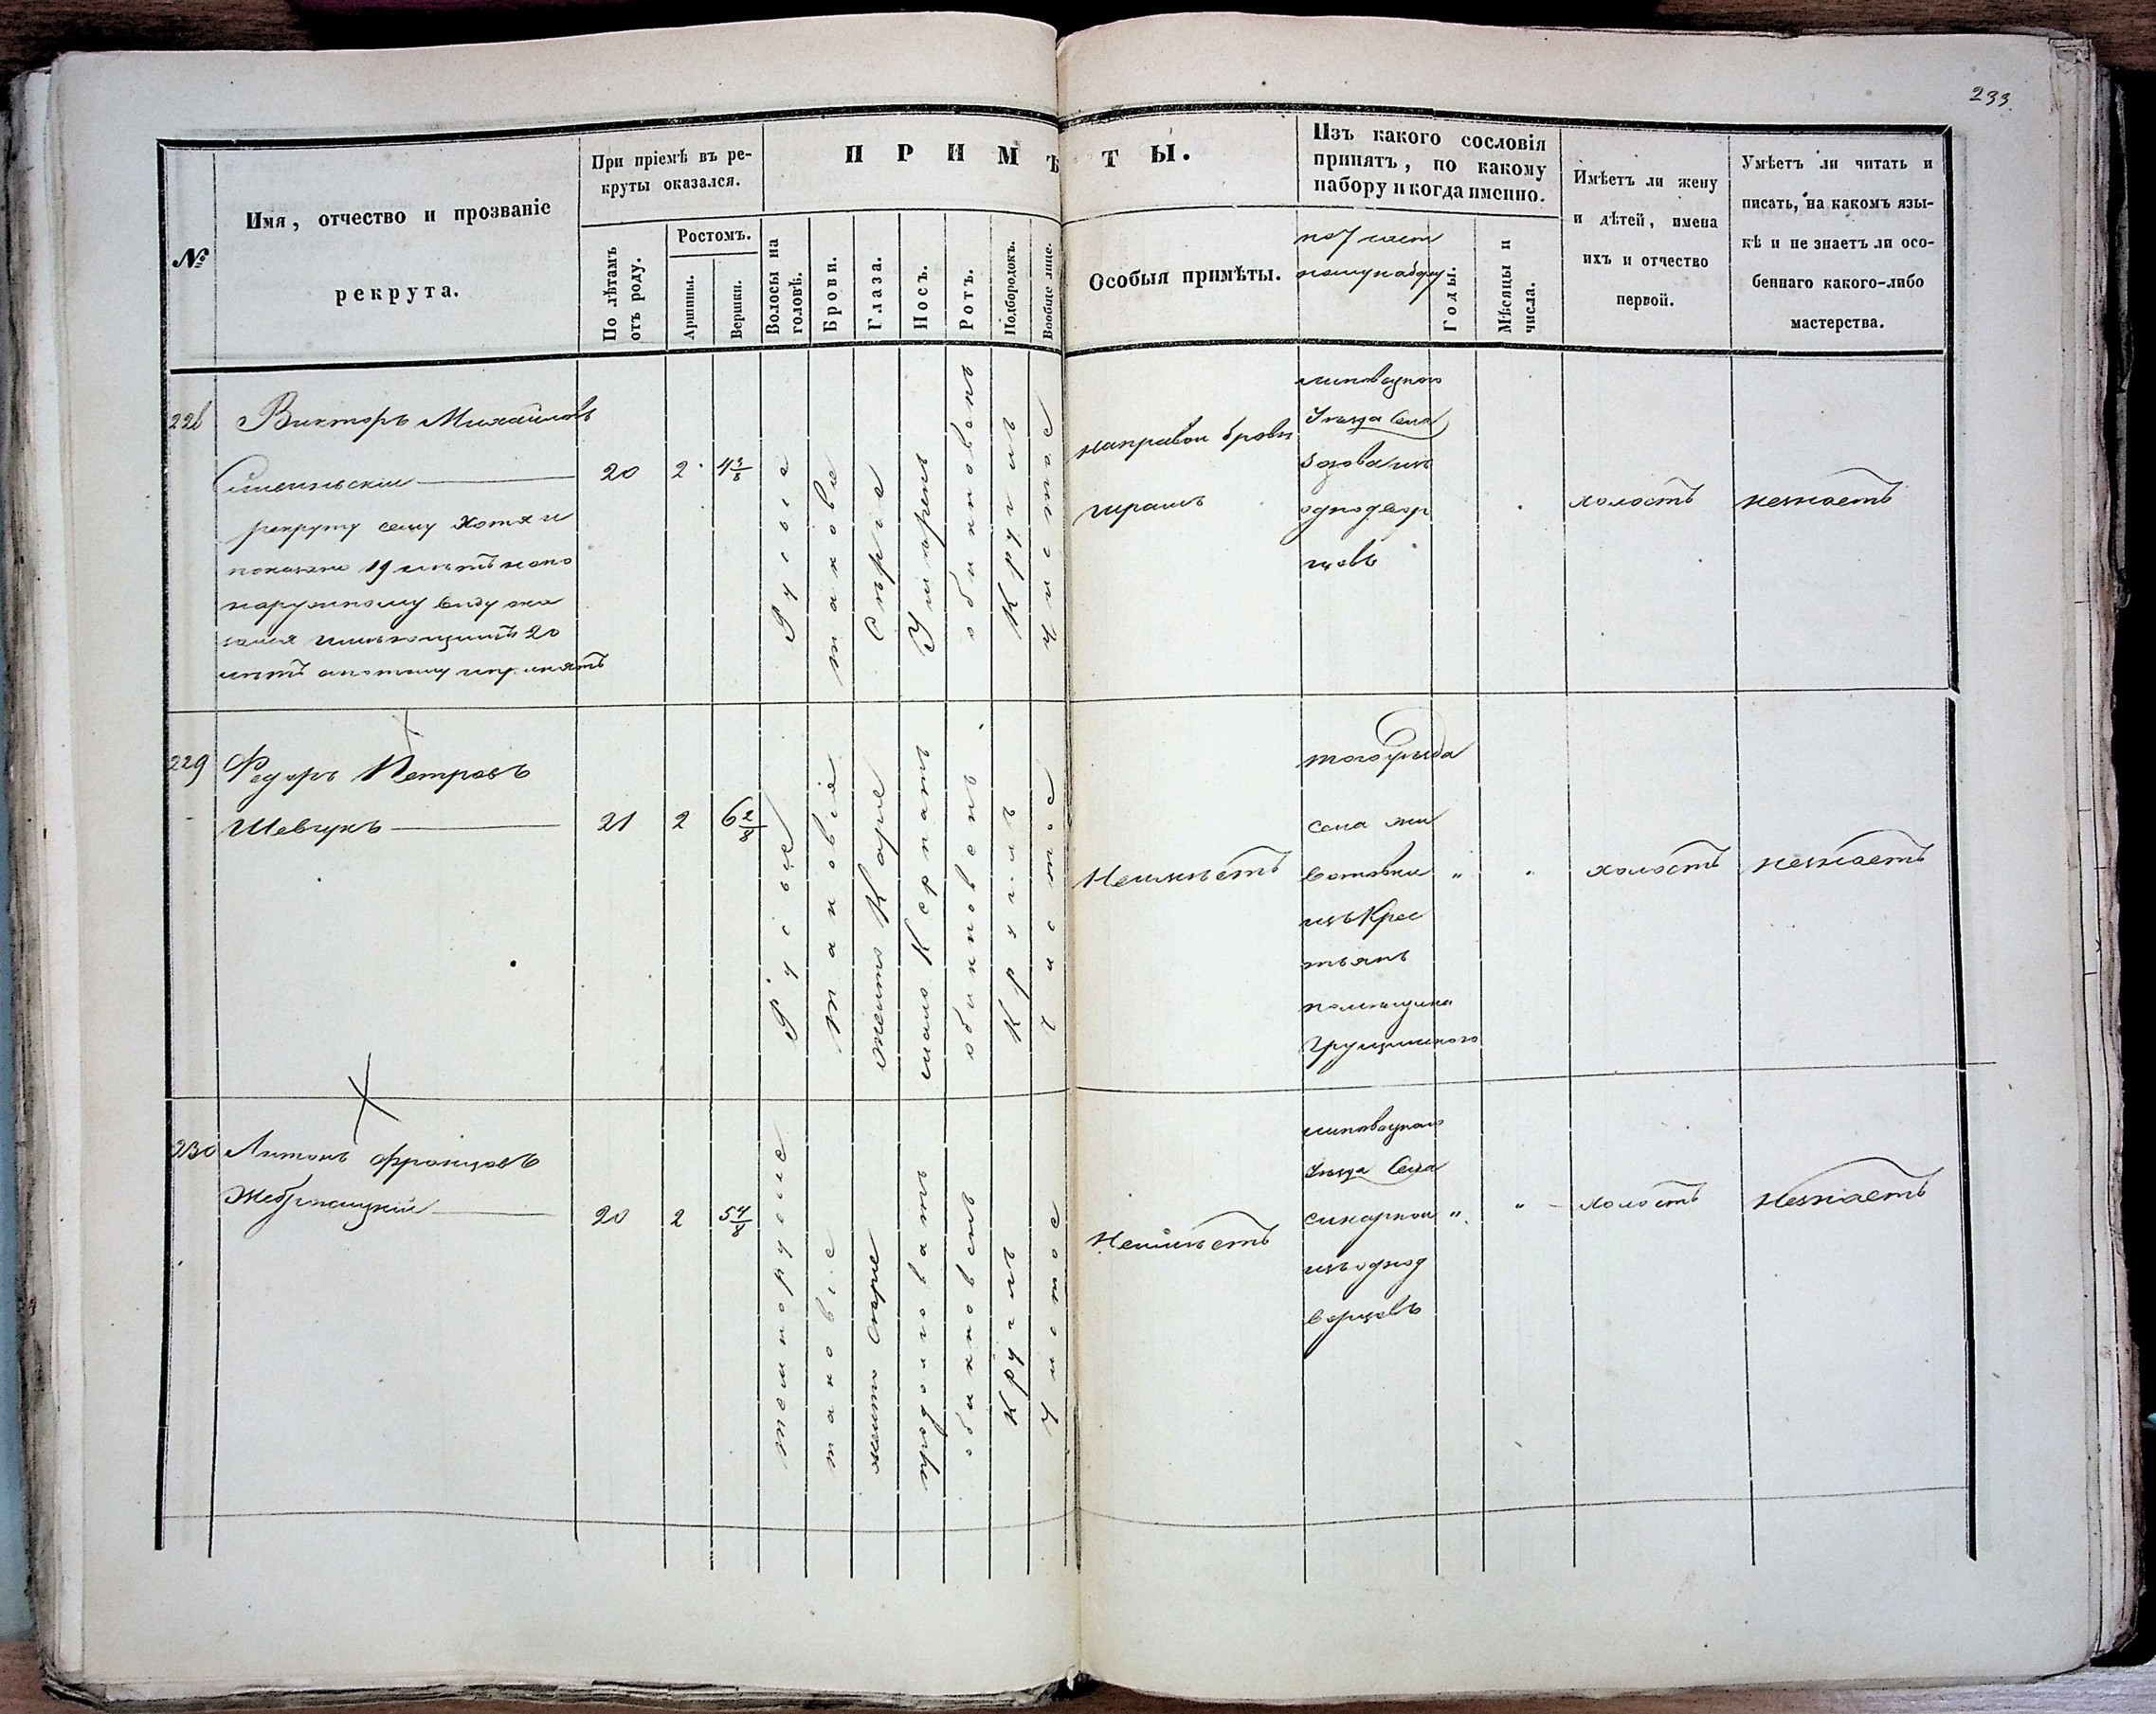 233.
№
Имя, отчество и прозваніе
рекрута.
При пріемѣ въ ре-
круты оказался.
По лѣтамъ
отъ роду.
Ростомъ.
Аршины.
Вершки.
ПРИМѢТЫ.
Волосы на
головѣ.
Брови.
Глаза.
Носъ.
Ротъ.
Подбородокъ.
Вообще лице.
Особыя примѣты.
Изъ какого сословія
принятъ, по какому
набору и когда именно.
по 7 част
ному набору
Годы.
Мѣсяцы и
числа.
Имѣетъ ли жену
и дѣтей, имена
ихъ и отчество
первой.
Умѣетъ ли читать и
писать, на какомъ язы-
кѣ и не знаетъ ли осо-
беннаго какого-либо
мастерства.
228
Викторъ Михайловъ
рекруту сему хотя и
показано 19 лѣтъ но по
наружному виду ока
зался имѣющимъ 20
лѣтъ а потому и принятъ
20
2
4 3/8
Русые
таковые
Сѣрые
Умѣренъ
обикновенъ
Круглъ
Чистое
на правой брови
шрамъ
липовецкого
Уѣзда Села
Зозова изъ
однодвор
цовъ
холостъ
незнаетъ
229
Федоръ Петровъ
Шевчукъ
21
2
6 2/8
Русые
Таковые
желто Карие
мало Ксрпатъ
обикновенъ
Круглъ
чистое
Неимѣетъ
того уѣзда
села жи
вотовки
изъ Крес
тьянъ
помѣщика
"
"
холостъ
незнаетъ
230
Антонъ Францовъ
20
2
5 4/8
темнорусие
таковые
желто Сѣрые
продолговатъ
обикновенъ
Круглъ
Чистое
Неимѣетъ
липовецкого
Уѣзда Села
изъ однод
ворцовъ
"
"
холостъ
Незнаетъ